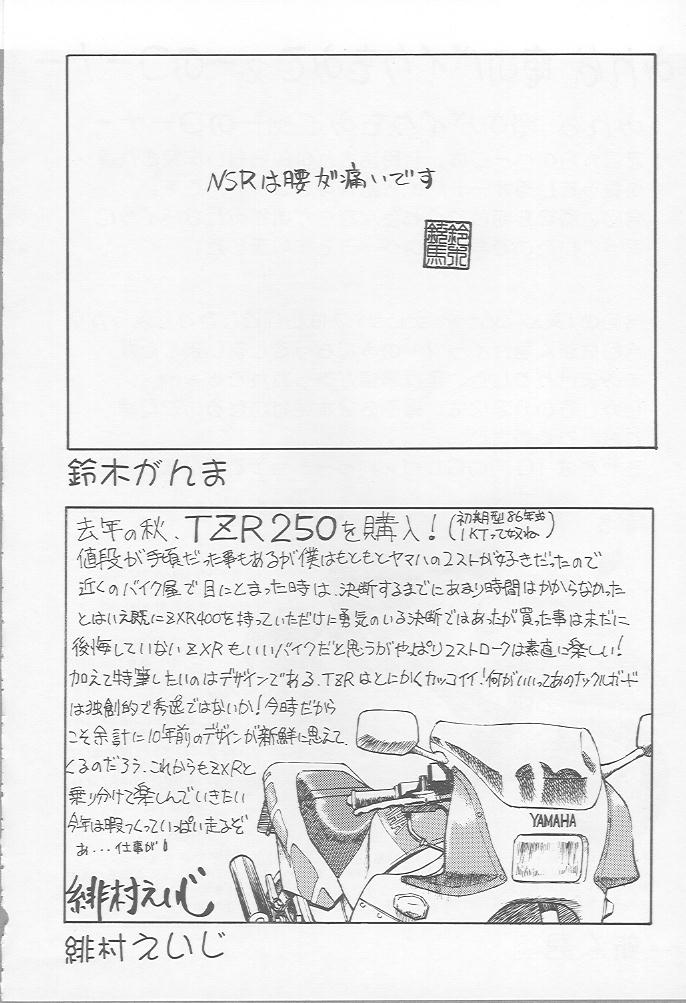 NSRは腰が痛いです
鈴木がんま
去年の秋、TZR250を購入！(初期型86年式 1KTって奴ね)
値段が手頃だった事もあるが僕はもともとヤマハの2ストが好きだったので
近くのバイク屋で目にとまった時は、決断するまでにあまり時間はかからなかった
とはいえ既にZXR400を持っていただけに勇気のいる決断ではあったが買った事は未だに
後悔していない ZXRもいいバイクだと思うがやっぱり2ストロークは素直に楽しい！
加えて特筆したいのはデザインである、TZRはとにかくカッコイイ！何がいいってあのナックルガード
は独創的で秀逸ではないか！今時だから
こそ余計に10年前のデザインが新鮮に思えて
くるのだろう、これからもZXRと
乗り分けて楽しんでいきたい
今年は暇つくっていっぱい走るぞ
あ...仕事が！
YAMAHA
緋村えいじ
緋村えいじ